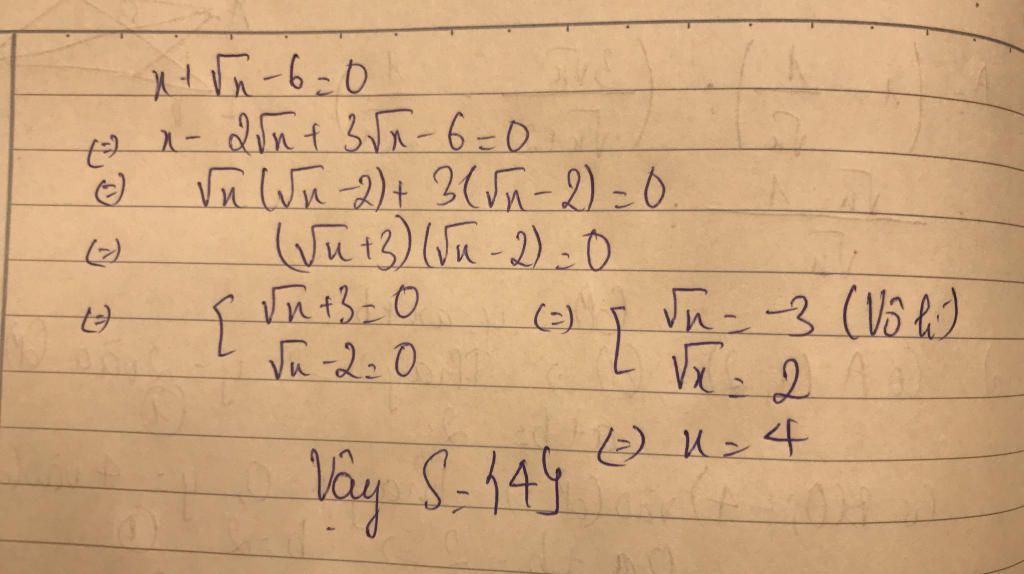 x + √x - 6 = 0
(=) x - 2√x + 3√x - 6 = 0
(=) √x (√x - 2) + 3(√x - 2) = 0
(=) (√x + 3)(√x - 2) = 0
(=) [ √x + 3 = 0 (=) [ √x = -3 (Vô lí)
√x - 2 = 0 √x = 2
(=) x = 4
Vậy S = {4}